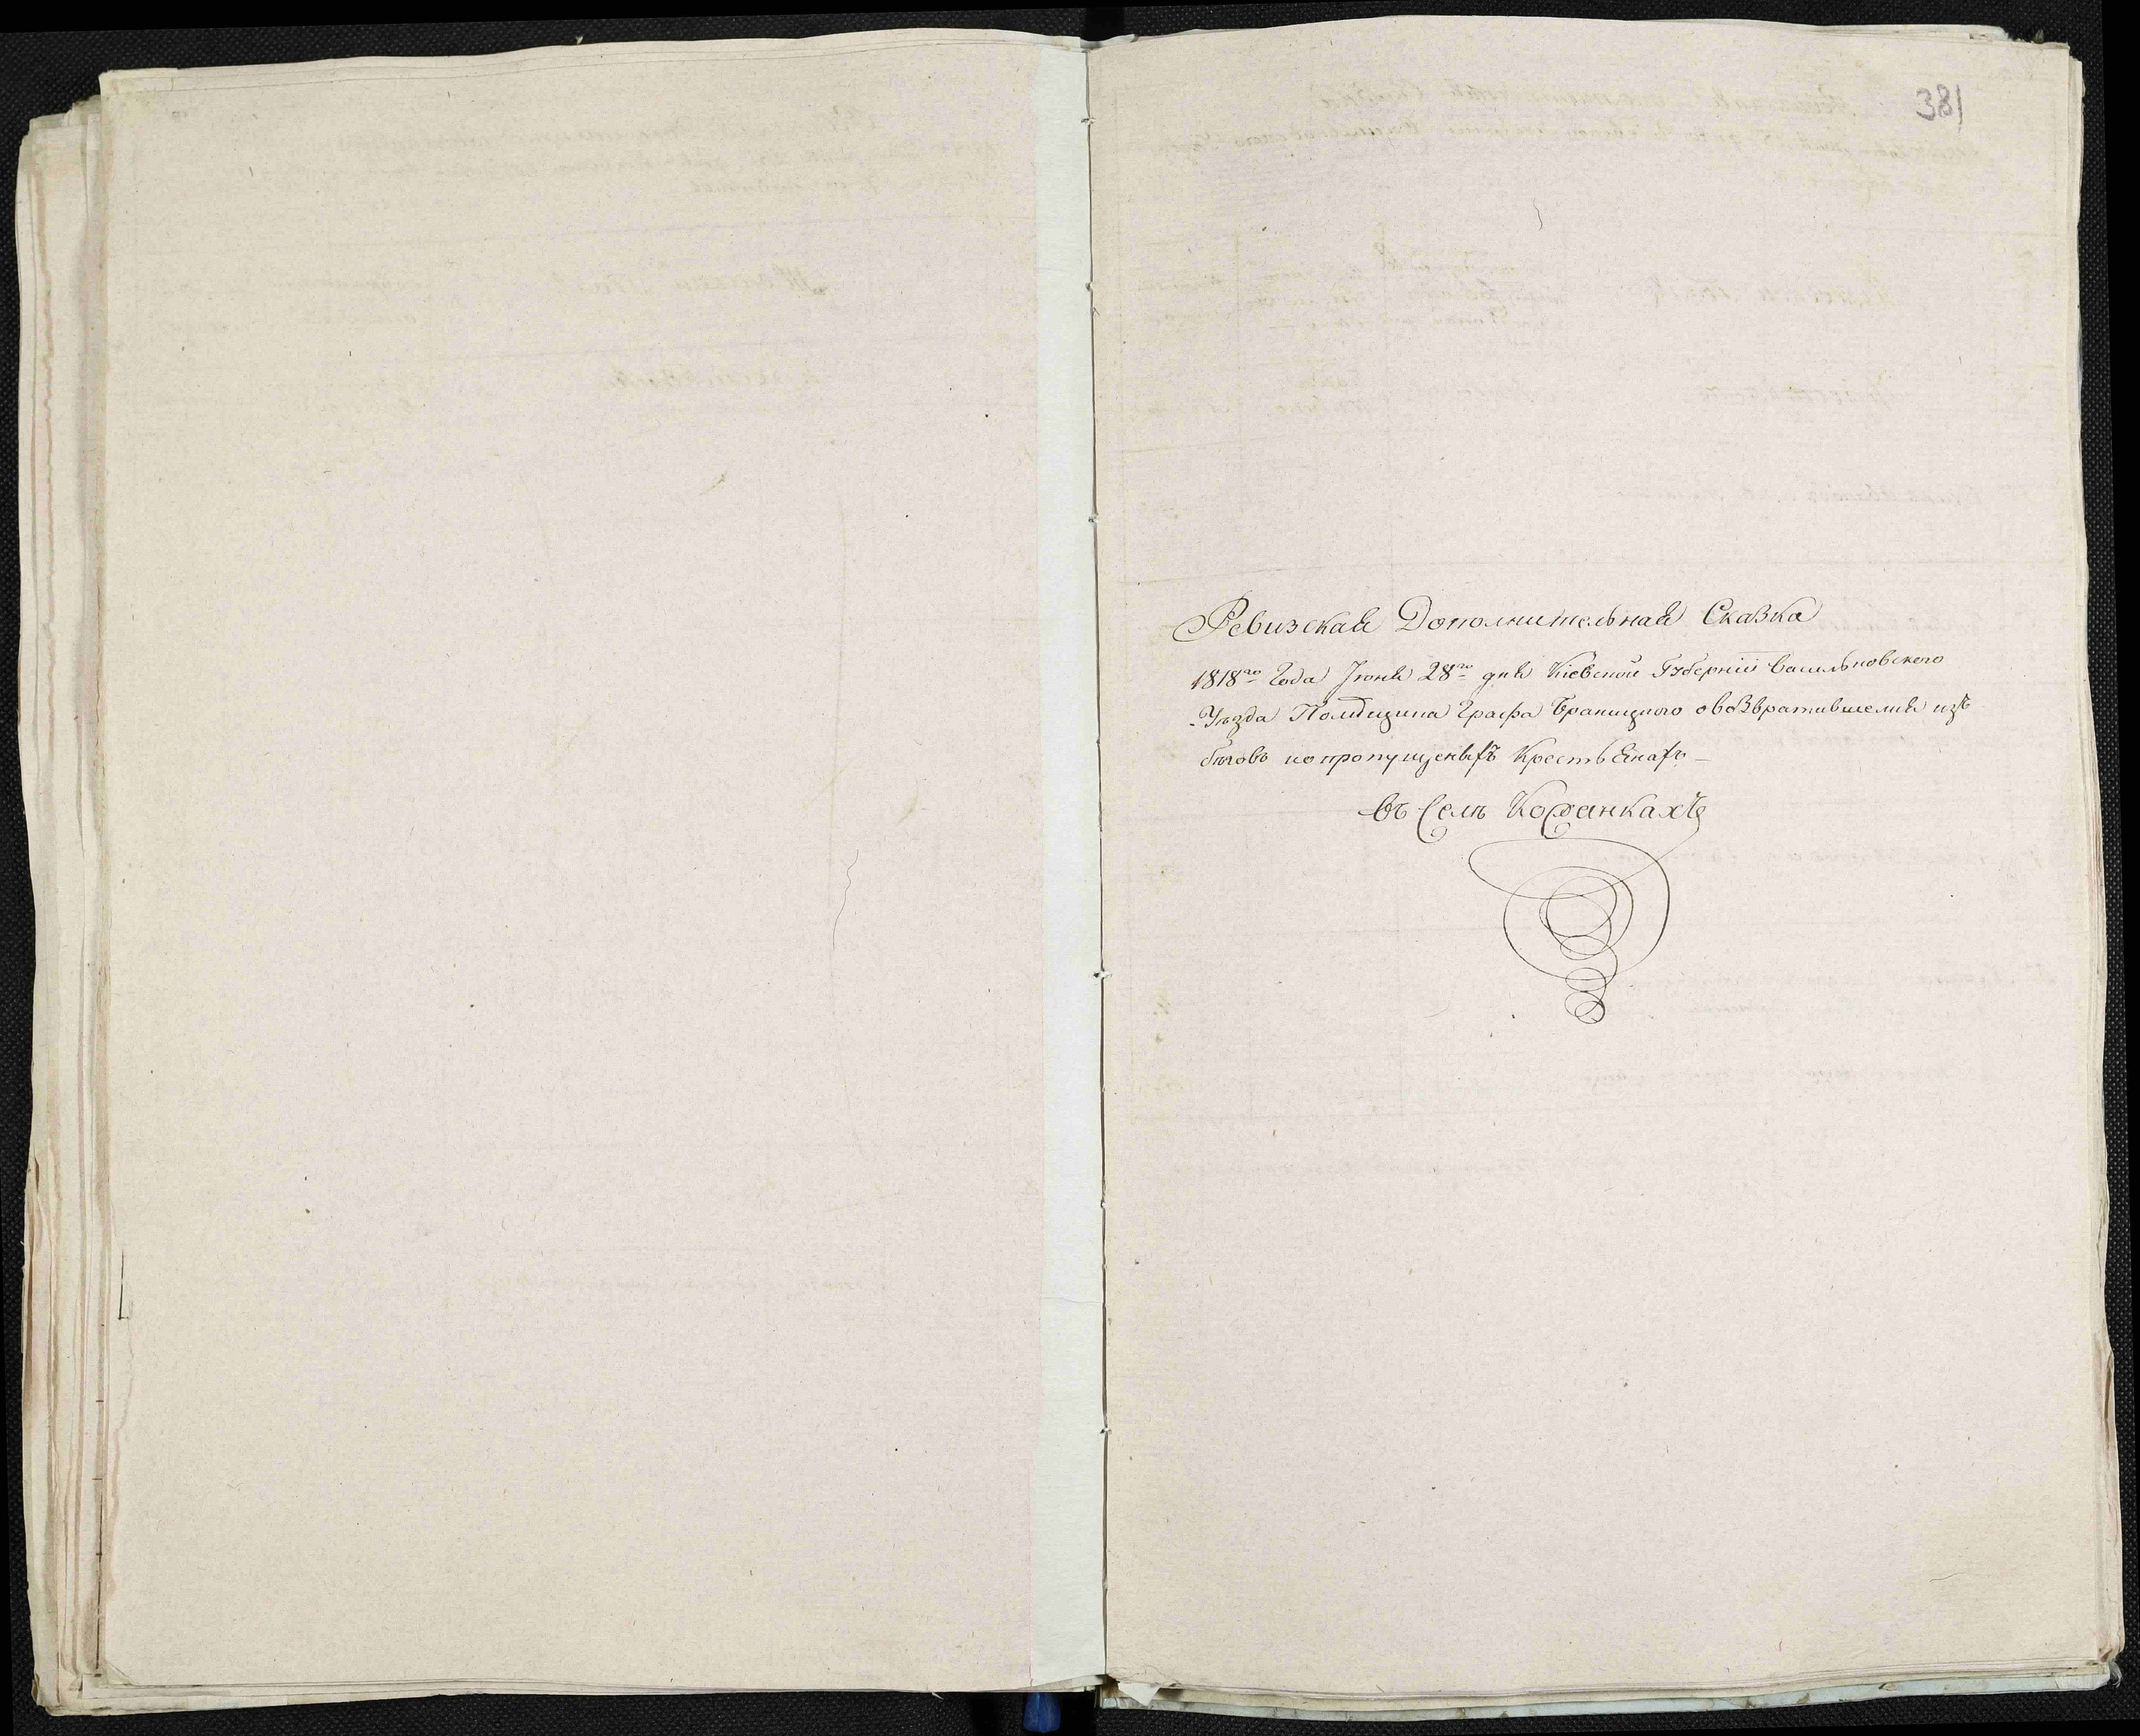 381
Ревизская Дополнительная Сказка
1818го Года Июня 28го дня Кіевской Губерніи Васильковского
Уѣзда Помѣщика Графа Браницкого о возвратившемся изъ
бѣговъ и о пропущеныхъ Крестьянахъ
въ Селѣ Кожанкахъ